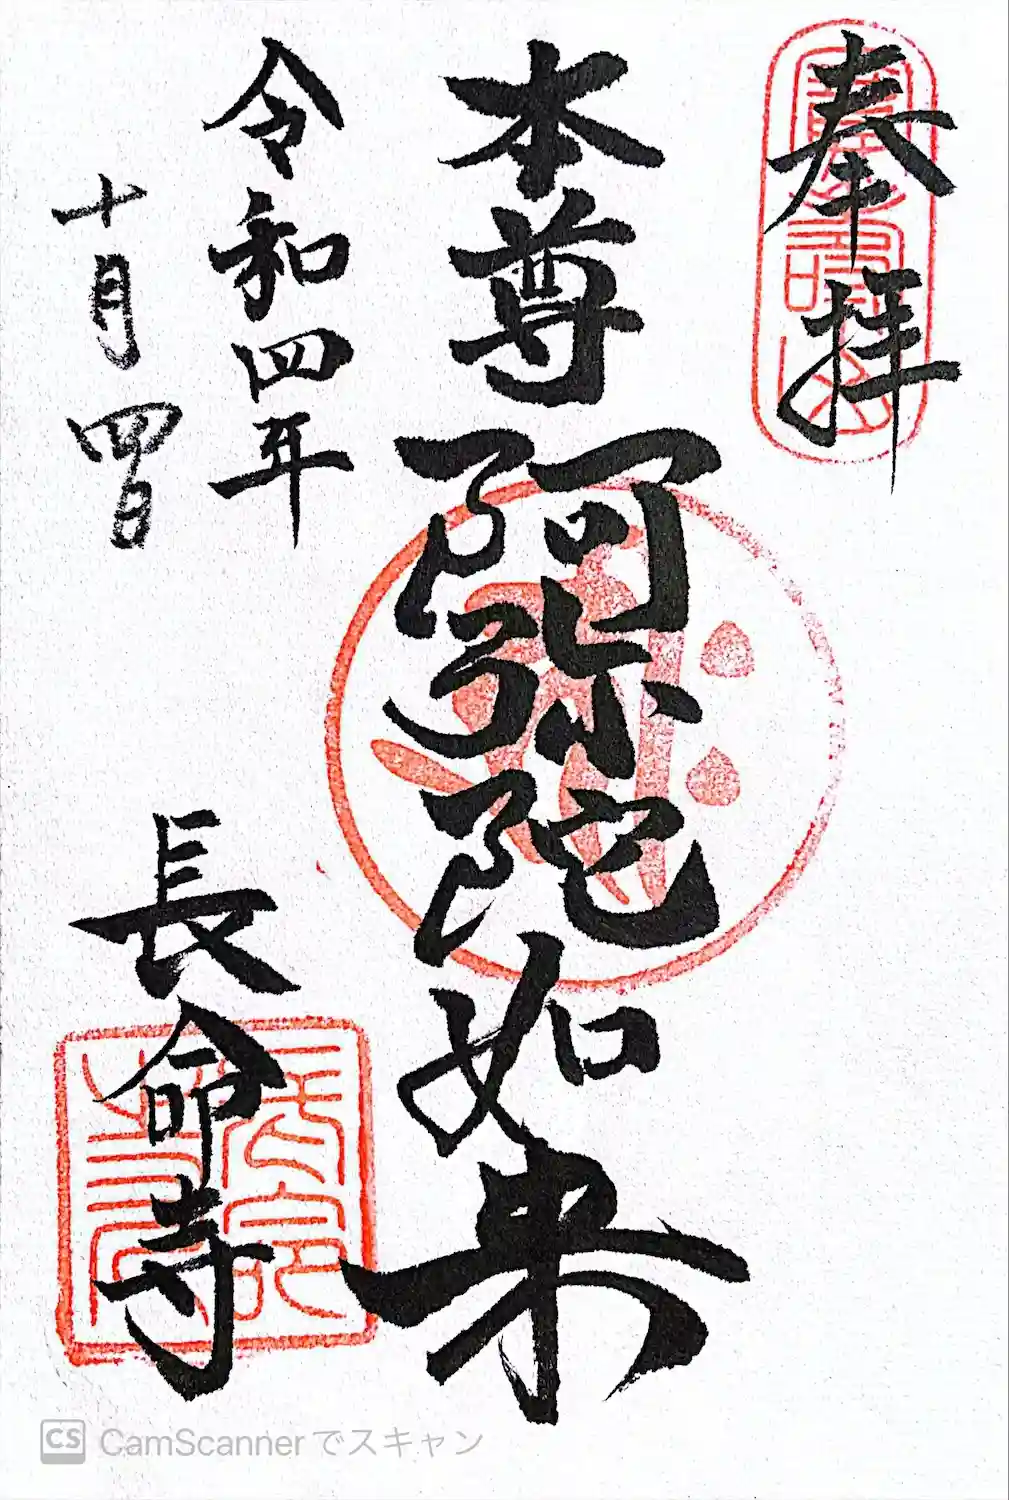 奉拝
本尊
阿弥陀如来
令和四年
十月四日
長命寺
CS CamScannerでスキャン